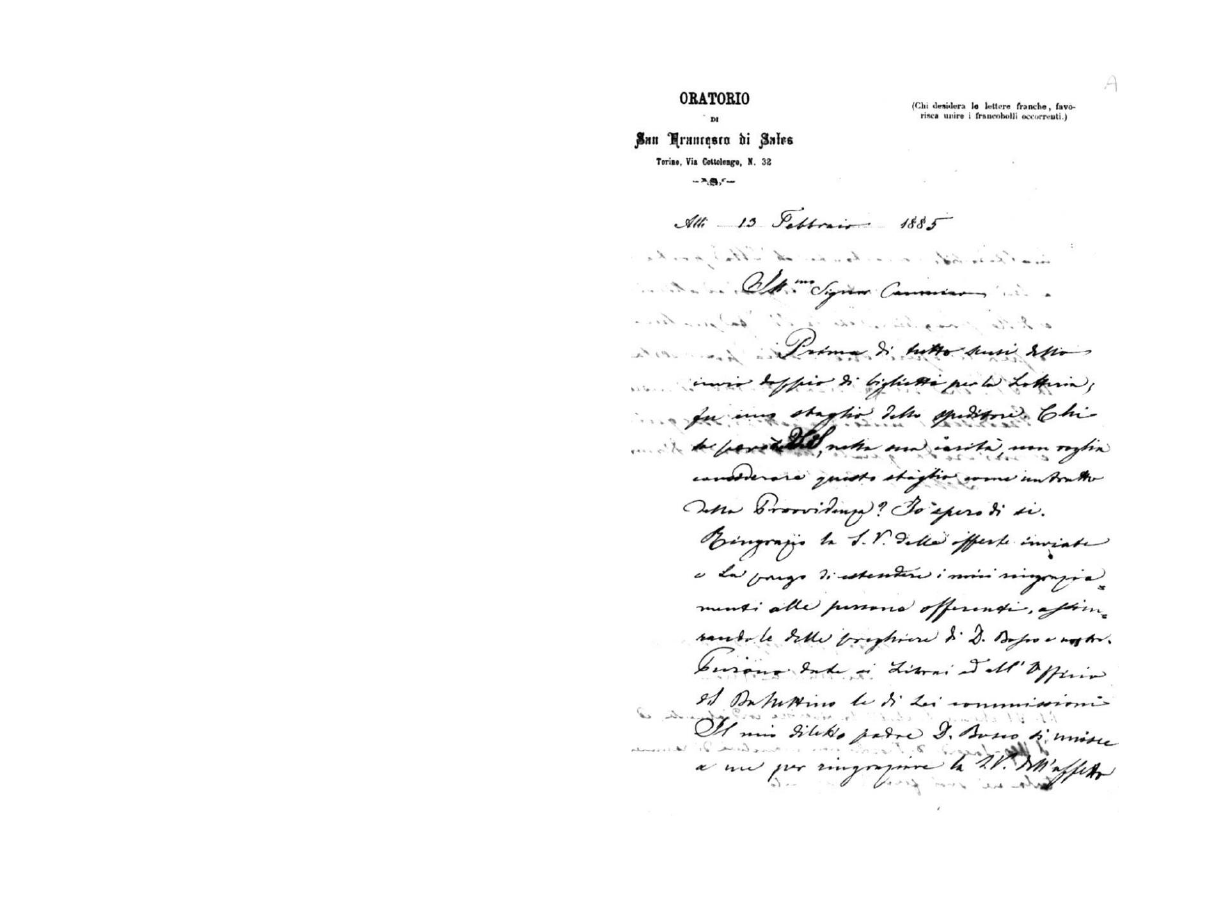 A
ORATORIO
DI
San Francesco di Sales
Torino, Via Cottolengo, N. 32
(Chi desidera le lettere franche, favo-
risca unire i francobolli occorrenti.)
Alli 13 Febbraio 1885
Ill.mo Signor
Prima di tutto scusi dello
invio doppio di biglietti per la Lotteria;
fu uno sbaglio dello speditore. Chi
sa però, nella sua carità, non voglia
considerare questo sbaglio come un tratto
della Provvidenza? Io spero di si.
Ringrazio la S. V. delle offerte inviate
e La prego di estendere i miei ringrazia=
menti alle persone offerenti, assicu=
randole delle preghiere di D. Bosco e nostre.
Furono date ai Librai ed all'Officio
del Bollettino le di Lei commissioni
Il mio diletto padre D. Bosco si unisce
a me per ringraziare la S. V. dell'affetto